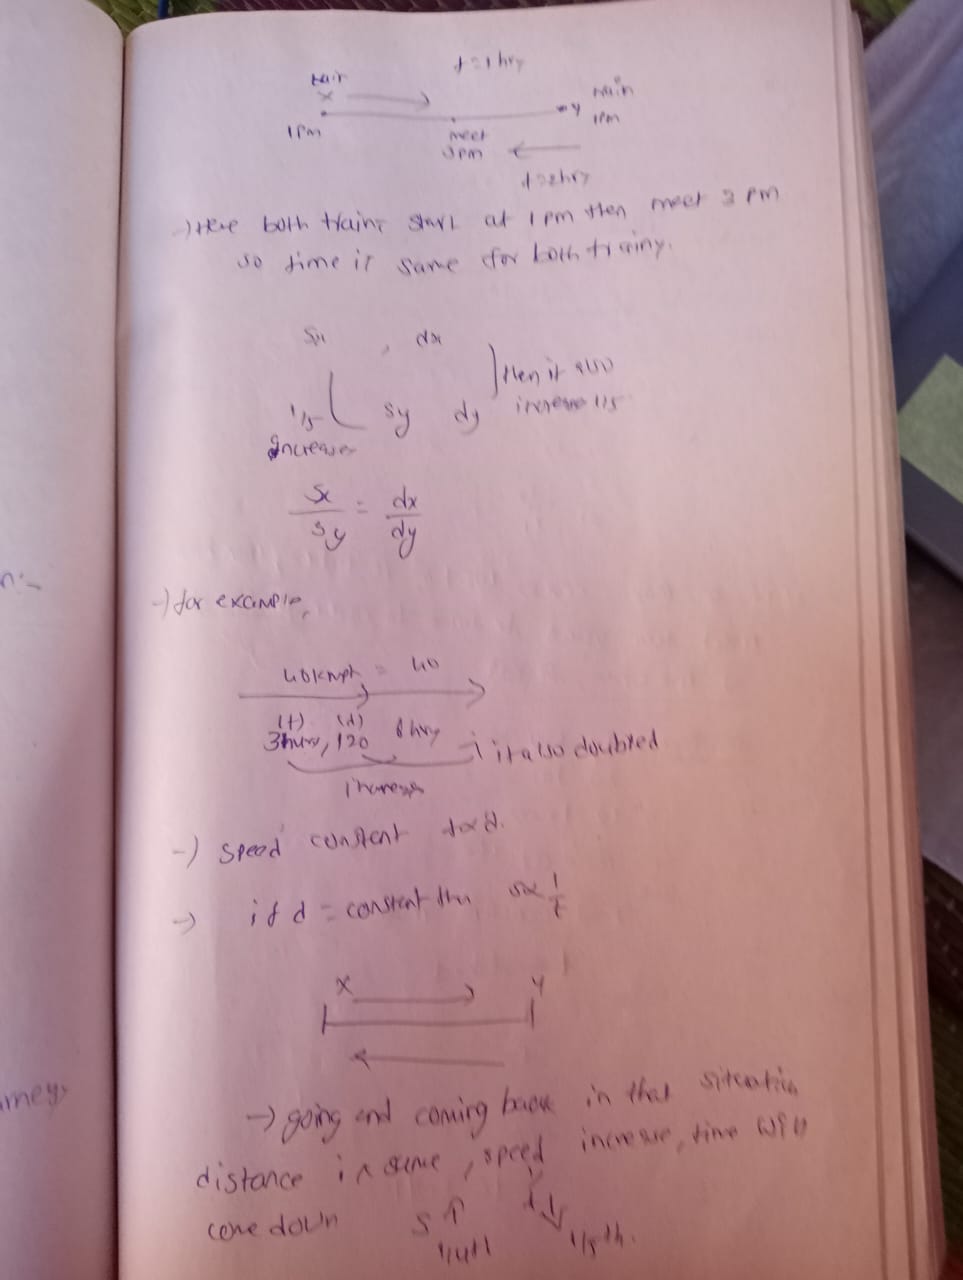 t=1hry
train
x
train
y
1Pm
1Pm
meet
3pm
t=2hry
-) Here both trains start at 1pm then meet 3 pm
so time is same for both trainy.
, dx
] then it also
1/5 sy dy increase 1/5
Increase
Sx/Sy = dx/dy
n:-
-) for example,
40kmph = 40
(t) (d)
3hurs, 120 6hry -) it also doubled
increase
-) speed constant t∝d.
-) if d = constant then s∝1/t
X Y
-) going and coming back in that situation
rney
distance is same, speed increase, time will
come down S↑ t↓
1/4th 1/5th.